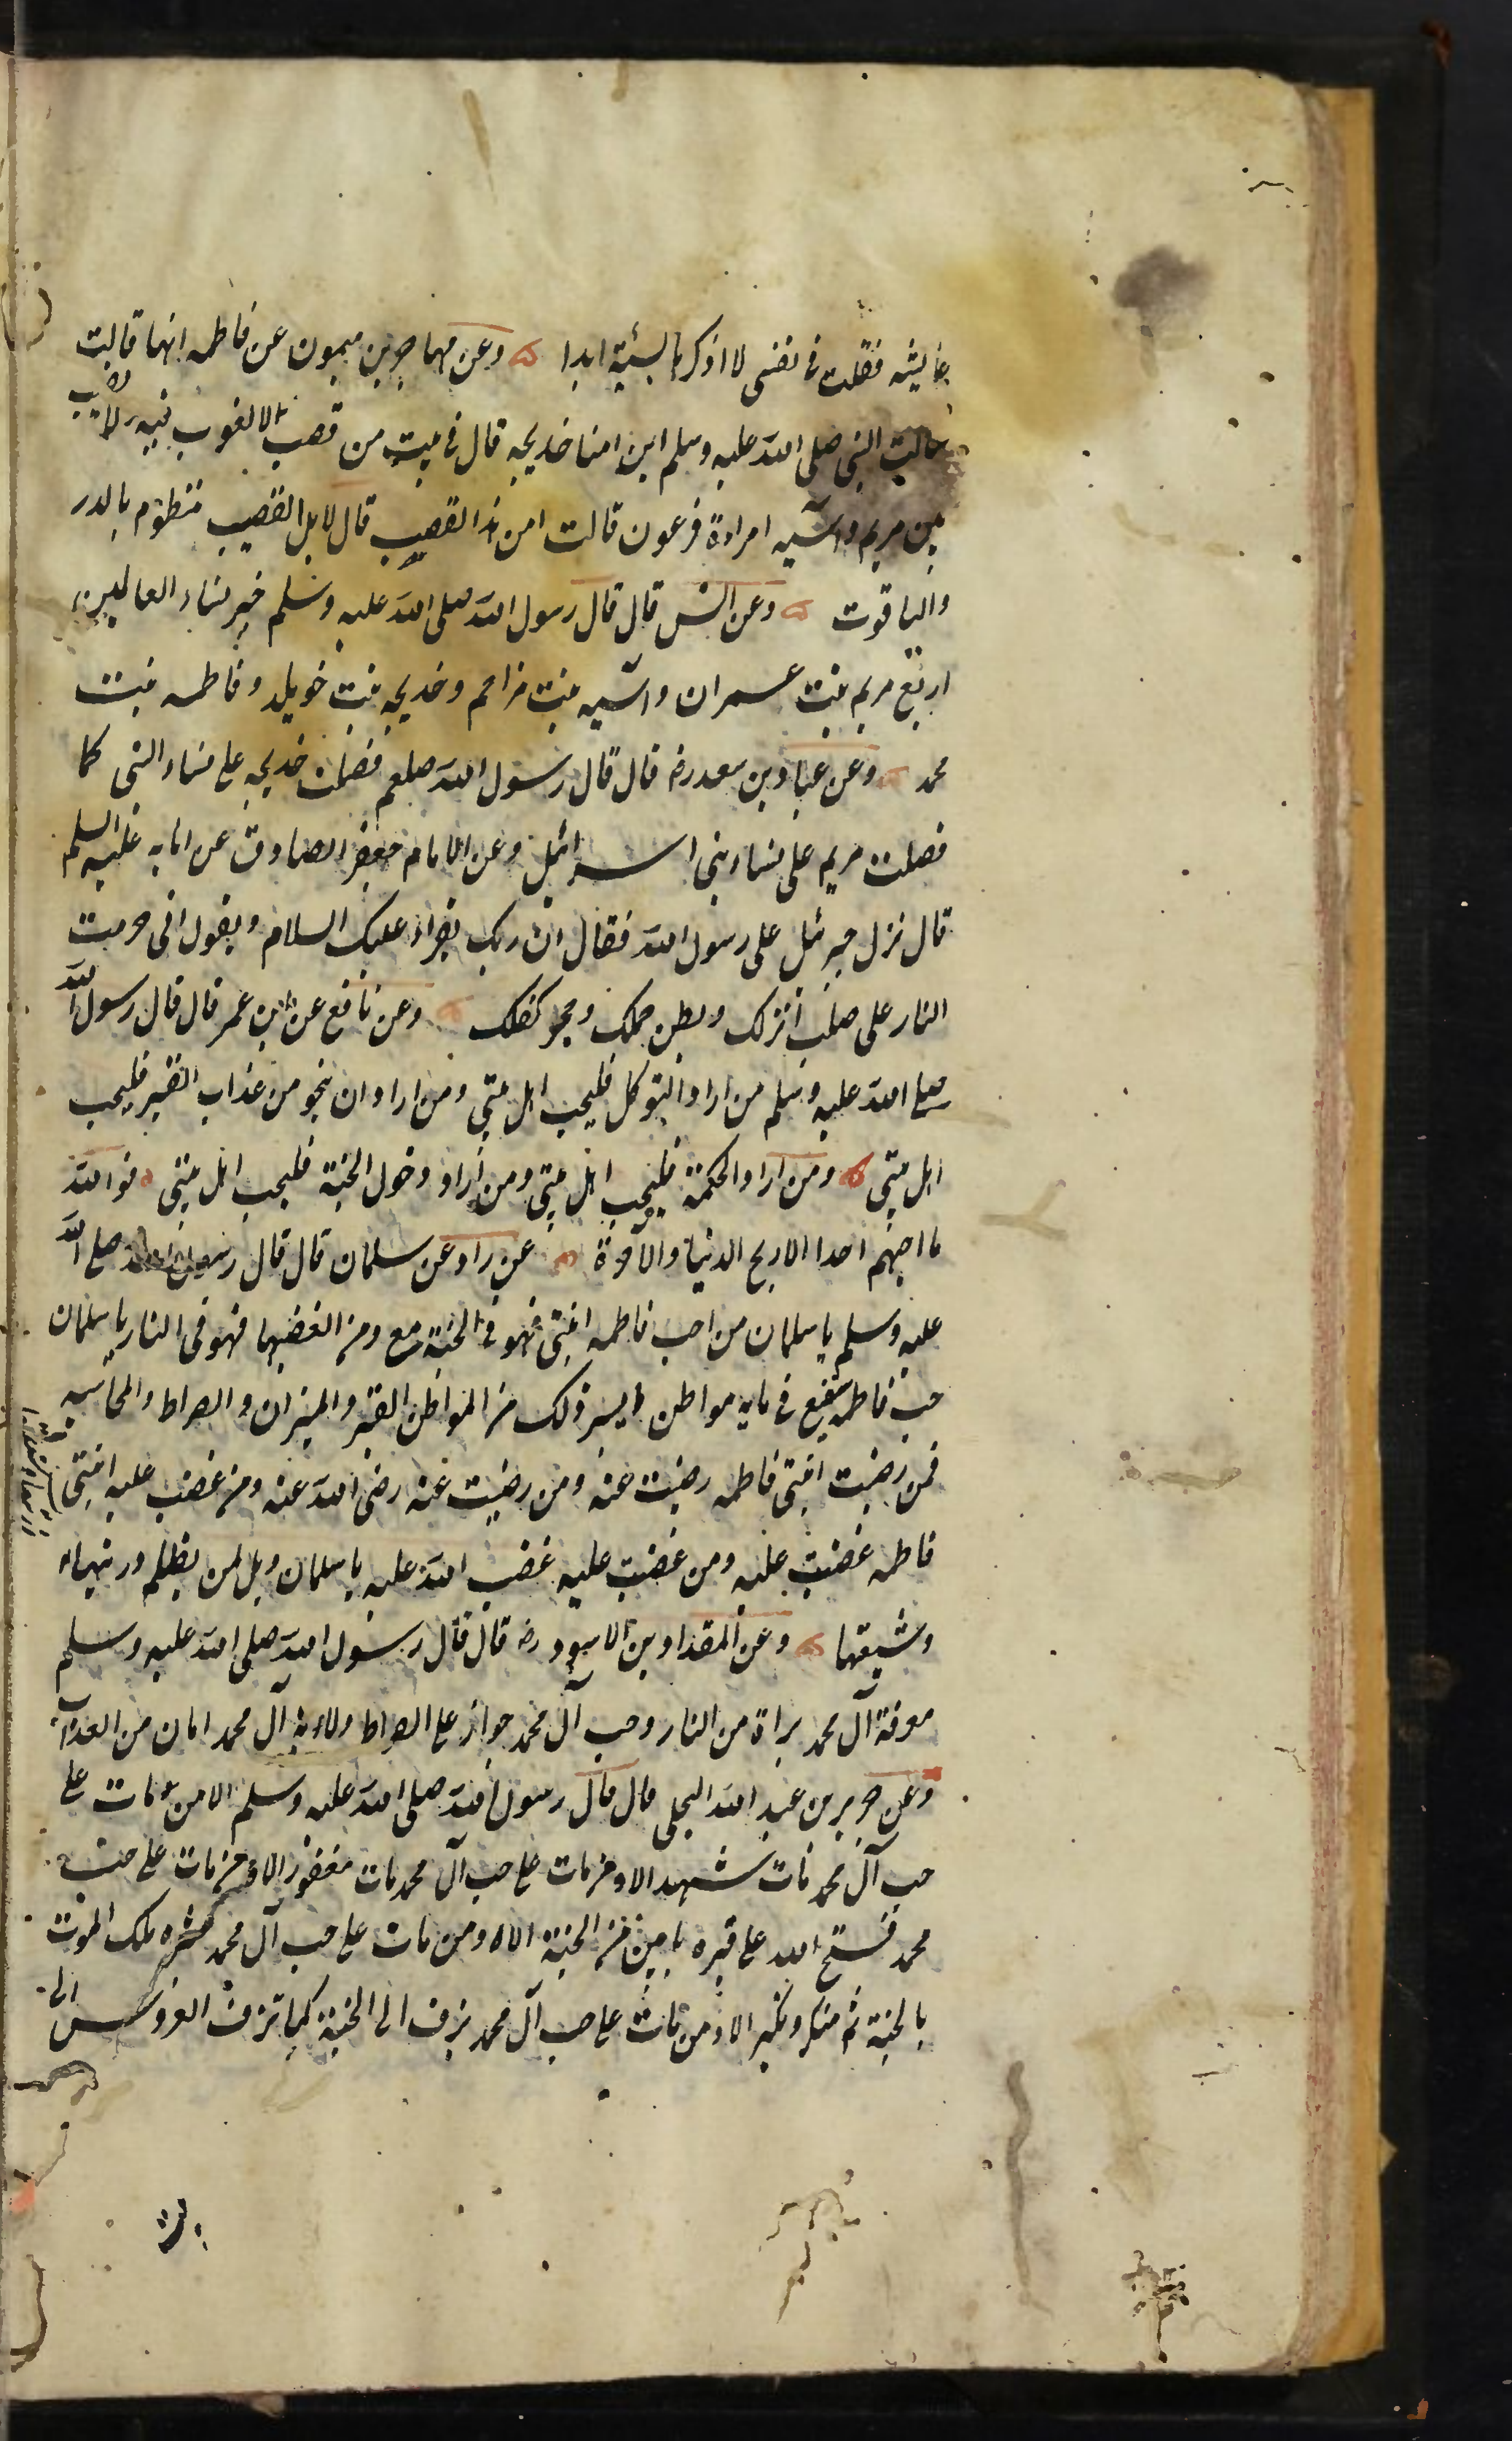 عايشه فقلت فى نفسى لا اذكرها بسيئة ابدا وعن مهاجر بن ميمون عن فاطمه انها قالت
سالت النبى صلى الله عليه وسلم اين امنا خديجه قال فى بيت من قصب لا لغوب فيه ولا نصب
بين مريم واسيه امراءة فرعون قالت امن هذا القصب قال لا بل القصب منظوم بالدر
والياقوت وعن انس قال قال رسول الله صلى الله عليه وسلم خير نساء العالمين
اربع مريم بنت عمران واسيه بنت مزاحم وخديجه بنت خويلد وفاطمه بنت
محمد وعن عباد بن سعد رضه قال قال رسول الله صلعم فضلت خديجه على نساء امتى كما
فضلت مريم على نساء بنى اسرائيل وعن الامام جعفر الصادق عن ابايه عليه السلم
قال نزل جبرئيل على رسول الله فقال ان ربك يقراء عليك السلام ويقول انى حرمت
النار على صلب انزلك وبطن حملك وحجر كفلك وعن نافع عن ابن عمر قال قال رسول الله
صلى الله عليه وسلم من اراد التوكل فليحب اهل بيتى ومن اراد ان ينجو من عذاب القبر فليحب
اهل بيتى ومن اراد الحكمة فليحب اهل بيتى ومن اراد دخول الجنة فليحب اهل بيتى فوالله
ما احبهم احدا الا ربح الدنيا والآخرة عن زاد عن سلمان قال قال رسول الله صلى الله
عليه وسلم يا سلمان من احب فاطمه ابنتى فهو فى الجنة مع ومن ابغضها فهو فى النار يا سلمان
حب فاطمه ينفع فى مايه مواطن ايسر ذلك من المواطن القبر والميزان والصراط والمحاسبه
فمن رضيت ابنتى فاطمه رضيت عنه ومن رضيت عنه رضى الله عنه ومن غضب عليه ابنتى
فاطمه غضبت عليه ومن غضبت عليه غضب الله عليه يا سلمان ويل لمن يظلم ذريتها
وشيعتها وعن المقداد بن الاسود رضه قال قال رسول الله صلى الله عليه وسلم
معرفة آل محمد براة من النار وحب آل محمد جواز على الصراط ولاية آل محمد امان من العذاب
وعن جرير بن عبد الله البجلى قال قال رسول الله صلى الله عليه وسلم الا من مات على
حب آل محمد مات شهيد الا ومن مات على حب آل محمد مات مغفور الا ومن مات على حب
محمد فتح الله على قبره بابين من الجنة الا ومن مات على حب آل محمد بشره ملك الموت
بالجنة ثم منكر ونكير الا ومن مات على حب آل محمد يزف الى الجنة كما تزف العروس الى